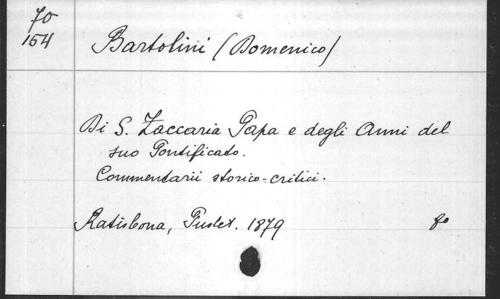 70
154
Bartolini (Domenico)
Di S. Zaccaria Papa e degli Anni del
suo Pontificato.
Commentarii storico-critici.
Ratisbona, Pustet. 1879 8o